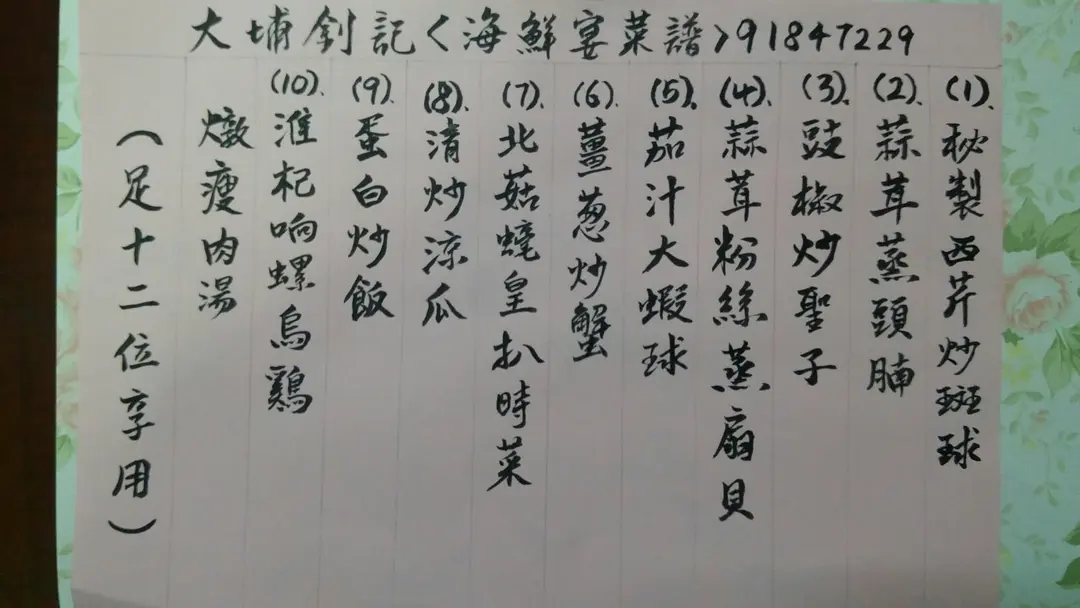 大埔釗記<海鮮宴菜譜>91847229
(1).秘製西芹炒斑球
(2).蒜茸蒸頭腩
(3).豉椒炒聖子
(4).蒜茸粉絲蒸扇貝
(5).茄汁大蝦球
(6).薑葱炒蟹
(7).北菇蟯皇扒時菜
(8).清炒涼瓜
(9).蛋白炒飯
(10).淮杞响螺烏鷄
燉瘦肉湯
(足十二位享用)